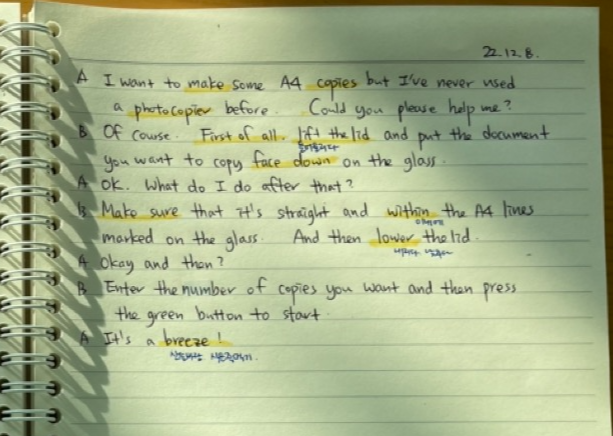 22.12.8.
A I want to make some A4 copies but I've never used
a photocopier before. Could you please help me?
B Of course. First of all, lift the lid and put the document
들어올리다
you want to copy face down on the glass.
A OK. What do I do after that?
B Make sure that it's straight and within the A4 lines
marked on the glass. And then lower the lid.
A Okay and then?
B Enter the number of copies you want and then press
the green button to start.
A It's a breeze!
산들바람